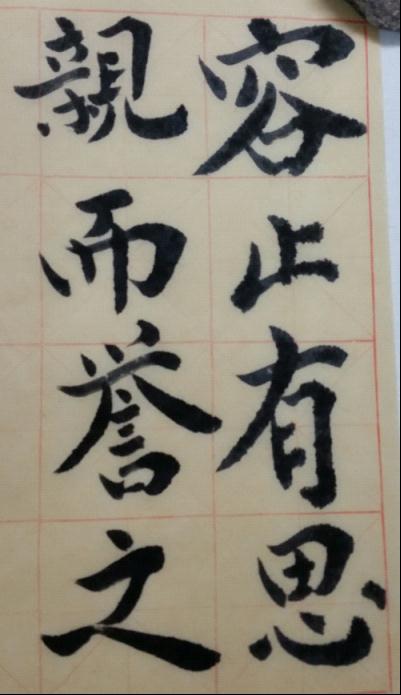 容止有思
親而誉之